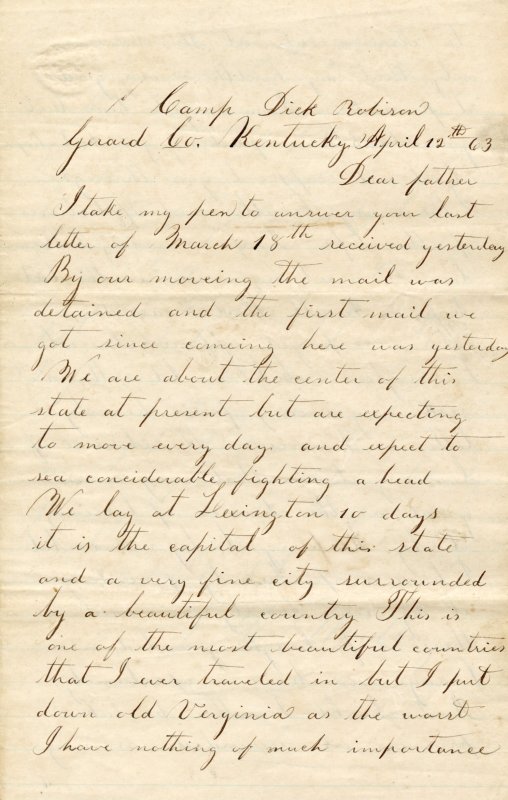 Camp Dick Robison
Gerard Co. Kentucky April 12th 63
Dear father
I take my pen to answer your last
letter of March 18th received yesterday
By our moveing the mail was
detained and the first mail we
got since comeing here was yesterday
We are about the center of this
state at present but are expecting
to move every day and expect to
sea conciderable fighting a head
We lay at Lexington 10 days
it is the capital of this state
and a very fine city surrounded
by a beautiful country This is
one of the most beautiful countries
that I ever traveled in but I put
down old Verginia as the worst
I have nothing of much importance